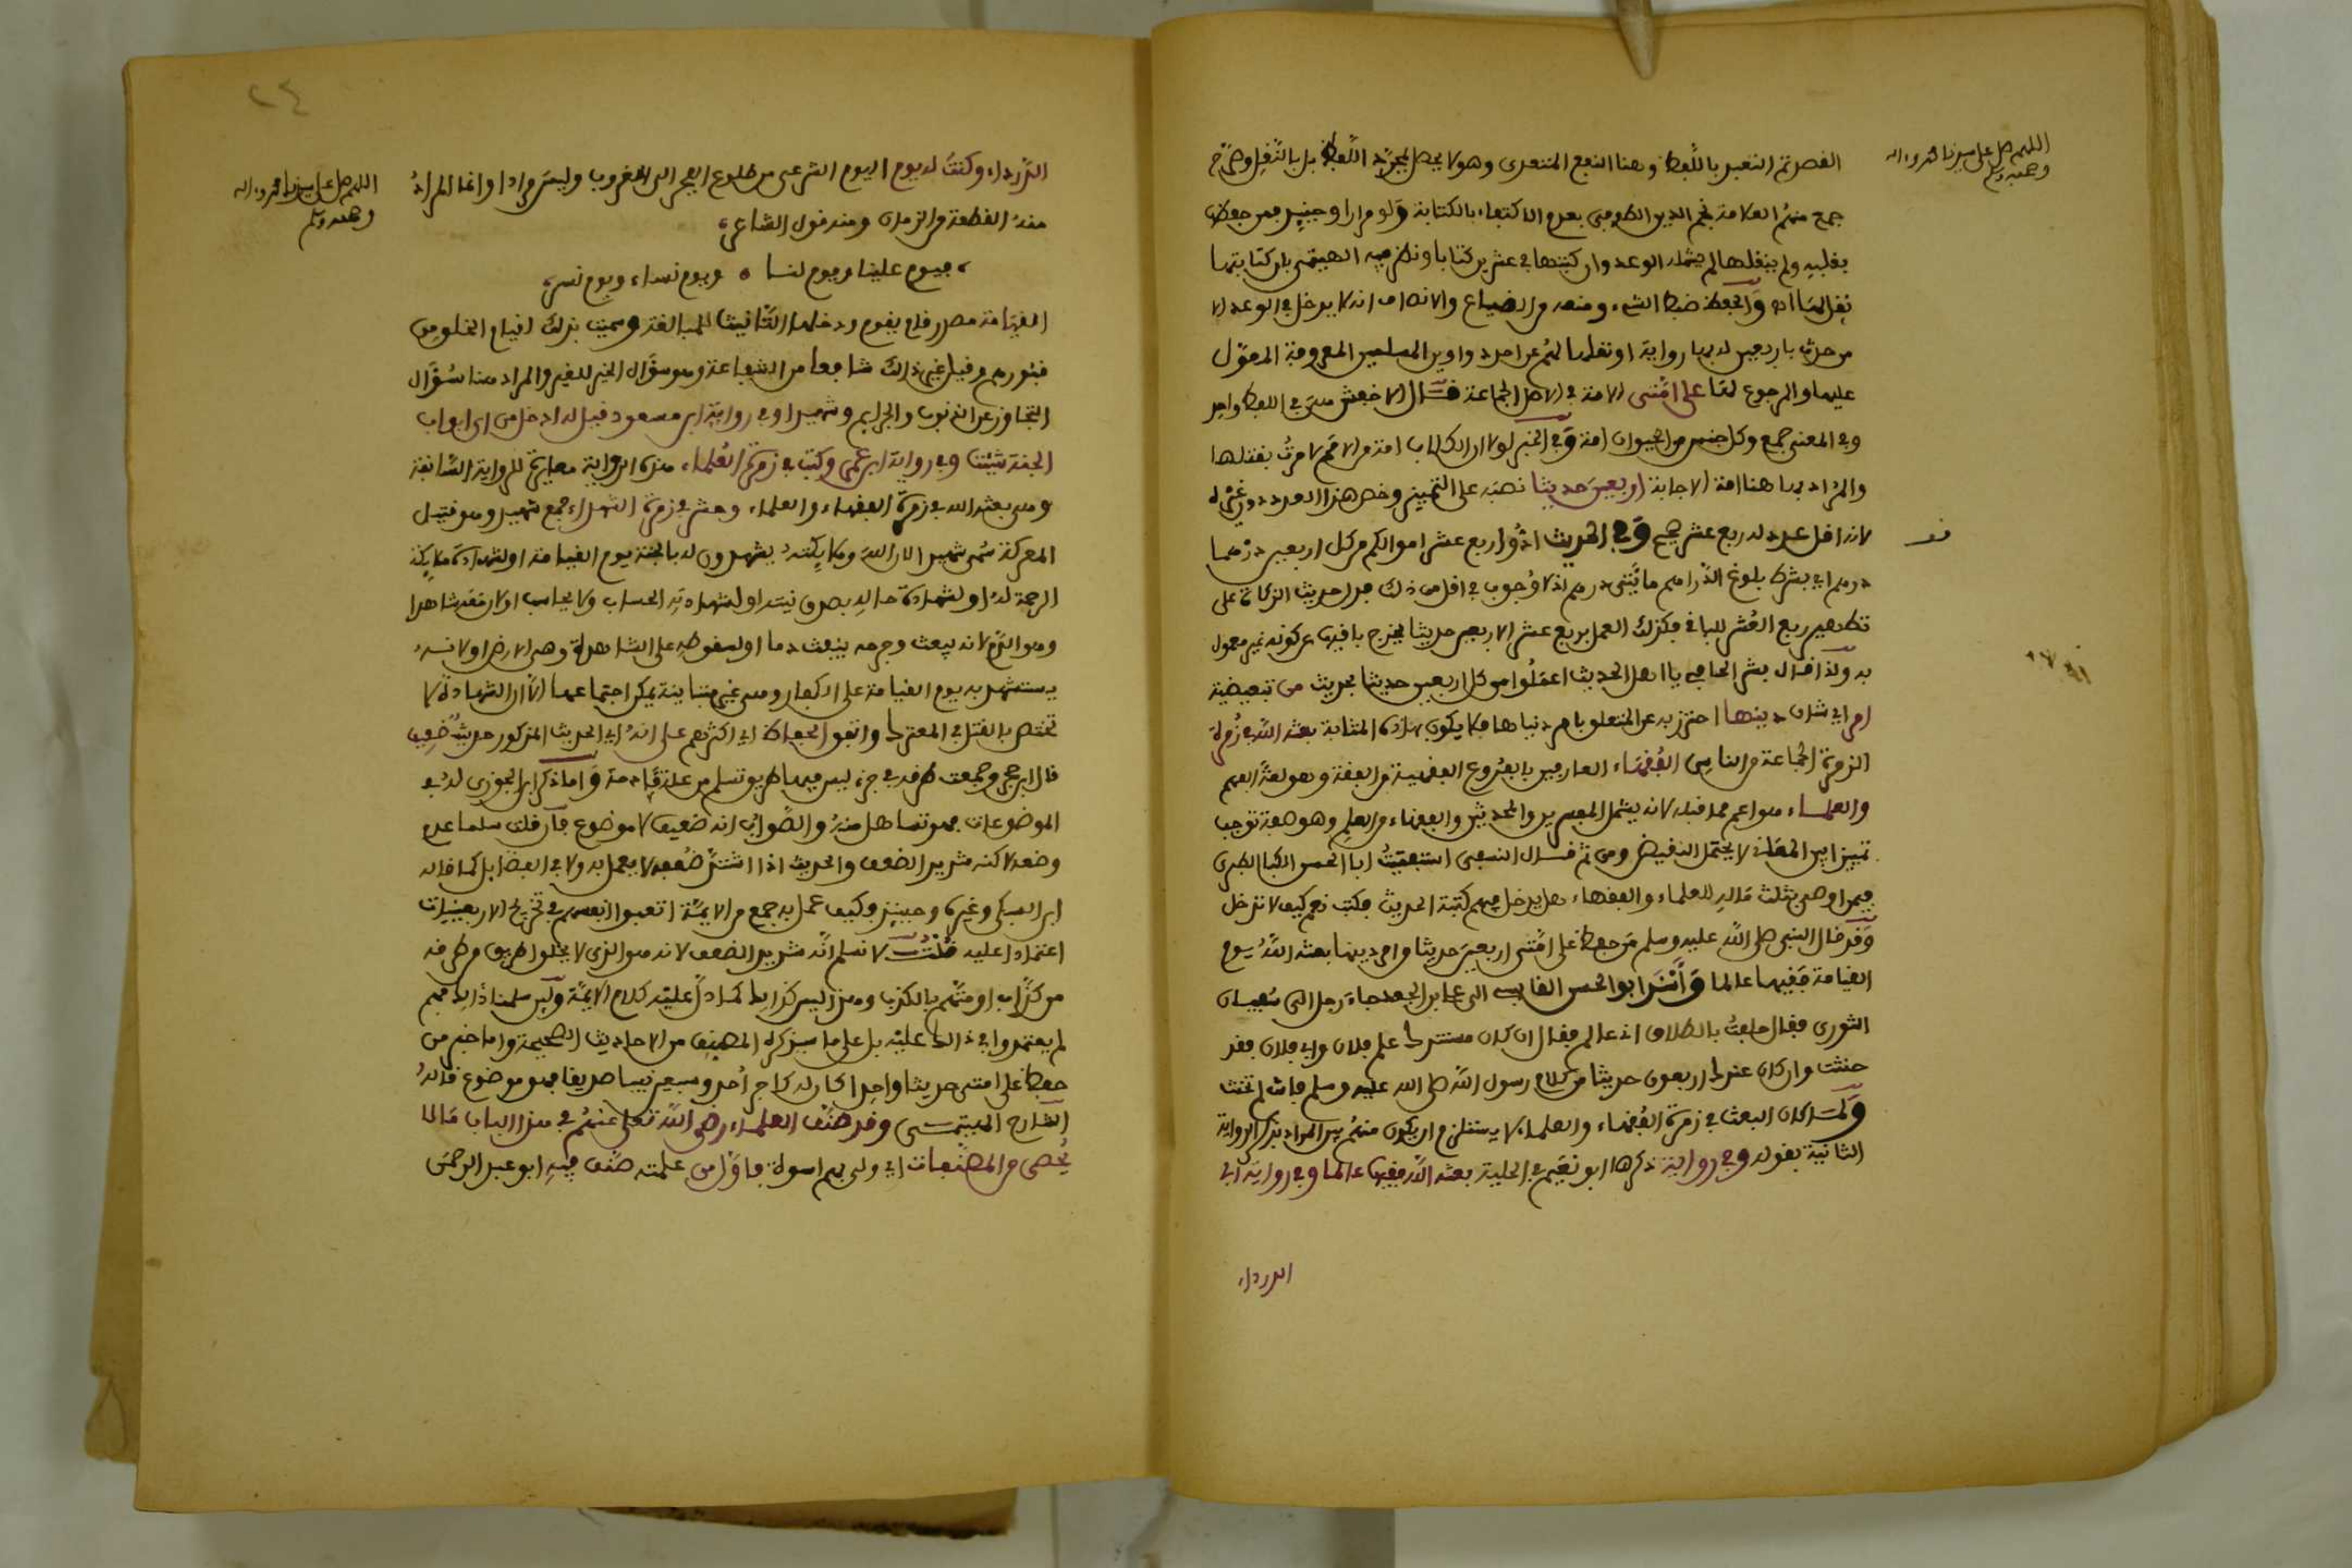 اللهم صل على سيدنا محمد وءاله
وصحبه وسلم
القصر ثم التعبير باللفظ وهنا النفع المتعدى وهو لا يحصل بمجرد اللفظ بل بالنقل وصرح
جمع منهم العلامة نجم الدين الطوفي بعدم الاكتفاء بالكتابة ولو مرارا وحينئذ فمن حفظ
بقلبه ولم ينقلها لم يشمله الوعد وان كتبها في عشرين كتابا ونظر فيه الهيتمي بان كتابتها
نقل لها اه والحفظ ضبط الشيء ومنعه من الضياع والانصاف انه لا يدخل في الوعد الا
من حدث باربعين له بها رواية او نقلها لهم عن احد دواوين المسلمين المعروفة المعول
عليها والمرجوع لها على امتى الامة في الاصل الجماعة قال الاخفش هي في اللفظ واحد
وفي المعنى جمع وكل جنس من الحيوان امة وفي الخبر لولا ان الكلاب امة من الامم لامرت بقتلها
والمراد بها هنا امة الاجابة اربعين حديثا نصبه على التمييز وخص هذا العدد دون غيره
لانه اقل عدد له ربع عشر صحيح وفي الحديث ادوا ربع عشر اموالكم من كل اربعين درهما
درهم اي بشرط بلوغ الدراهم مائتي درهم اذ لا وجوب في اقل من ذلك فدل حديث الزكاة على
تطهير ربع العشر للباقي فكذلك العمل بربع عشر الاربعين حديثا يخرج باقيها عن كونه غير معمول
به ولذا قال بشر الحافي يا اهل الحديث اعملوا من كل اربعين حديثا بحديث من تبعيضية
امر اي شان دينها احترز به عن المتعلق بامر دنياها فلا يكون بهاذه المثابة بعثه الله في زمرة
الزمرة الجماعة من الناس الفقهاء العارفين بالفروع الفقهية من الفقه وهو لغة الفهم
والعلماء هو اعم مما قبله لانه يشمل المفسرين والمحدثين والفقهاء من العلم وهو صفة توجب
تمييزا بين المعاني لا يحتمل النقيض ومن ثم قال النسفي استفتيت ابا الحسن الكيا الطبري
فيمن اوصى بثلث ماله للعلماء والفقهاء هل يدخل فيهم كتبة الحديث فكتب نعم كيف لا تدخل
وقد قال النبي صلى الله عليه وسلم من حفظ على امتى اربعين حديثا من امر دينها بعثه الله يوم
القيامة فقيها عالما وأسند ابو الحسن القابسي الى علي بن الجعد جاء رجل الى سفيان
الثوري فقال حلفت بالطلاق اني عالم فقال ان كان عندك علم فلان وابي فلان فقد
حنثت وان كان عندك اربعون حديثا من كلام رسول الله صلى الله عليه وسلم فانت لم تحنث
ولما كان البعث في زمرة الفقهاء والعلماء لا يستلزم ان يكون منهم بين المراد بذكر الرواية
الثانية بقوله وفي رواية ذكرها ابو نعيم في الحلية بعثه الله فقيها عالما وفي رواية ابي
الدرداء
٢٤
اللهم صل على سيدنا محمد وءاله
وصحبه وسلم
الدرداء وكنت له يوم اليوم الشرعى من طلوع الفجر الى الغروب وليس مرادا وانما المراد
منه القطعة من الزمان ومنه قول الشاعر
فيوم علينا ويوم لنا ٠ ويوم نساء ويوم نسر
القيامة مصدر قام يقوم ودخلها التانيث للمبالغة وسميت بذلك لقيام الخلق من
قبورهم وقيل غير ذالك شافعا من الشفاعة وهو سؤال الخير للغير والمراد هنا سؤال
التجاوز عن الذنوب والجرائم وشهيدا وفي رواية ابن مسعود قيل له ادخل من اي ابواب
الجنة شئت وفي رواية ابن عمر وكتب في زمرة العلماء هذه الرواية مغايرة للرواية السابقة
وهى بعثه الله في زمرة الفقهاء والعلماء وحشر في زمرة الشهداء جمع شهيد وهو قتيل
المعركة سمى شهيدا لان الله وملائكته يشهدون له بالجنة يوم القيامة او لشهادة ملائكة
الرحمة له او لشهادة حاله بصدق نيته او لشهادته الحساب ولا يحاسب او لان معه شاهدا
وهو الدم لانه يبعث وجرحه ينبعث دما او لسقوطه على الشاهدة وهى الارض او لانه
يستشهد به يوم القيامة على الكفار وهى غير متباينة يمكن اجتماعها الا ان الشهادة لا
تختص بالقتل في المعترك واتفق الحفاظ اي اكثرهم على انه اي الحديث المذكور حديث ضعيف
قال ابن حجر وجمعت طرقه في جزء ليس فيها طريق تسلم من علة قادحة واما ذكر ابن الجوزي له في
الموضوعات فهو تساهل منه والصواب انه ضعيف لا موضوع فان قلت سلمنا عدم
وضعه لاكنه شديد الضعف والحديث اذا اشتد ضعفه لا يعمل به ولا في الفضائل كما قاله
ابن السبكي وغيره وحينئذ وكيف عمل به جمع من الايمة اتعبوا انفسهم في تخريج الاربعينيات
اعتمادا عليه قلت لا نسلم انه شديد الضعف لانه هو الذى لا يخلوا طريق من طرقه
من كذاب او متهم بالكذب وهذا ليس كذالك كما دل عليه كلام الايمة ولئن سلمنا ذالك فهم
لم يعتمدوا في ذالك عليه بل على ما سيذكره المصنف من الاحاديث الصحيحة واما خبر من
حفظ على امتى حديثا واحدا كان له كاجر احد وسبعين نبيا صديقا فهو موضوع قاله
الشارح الهيتمي وقد صنف العلماء رضى الله تعلى عنهم في هذا الباب مالا
يحصى من المصنفات اي ولى بهم اسوة فاول من علمته صنف فيه ابو عبد الرحمن